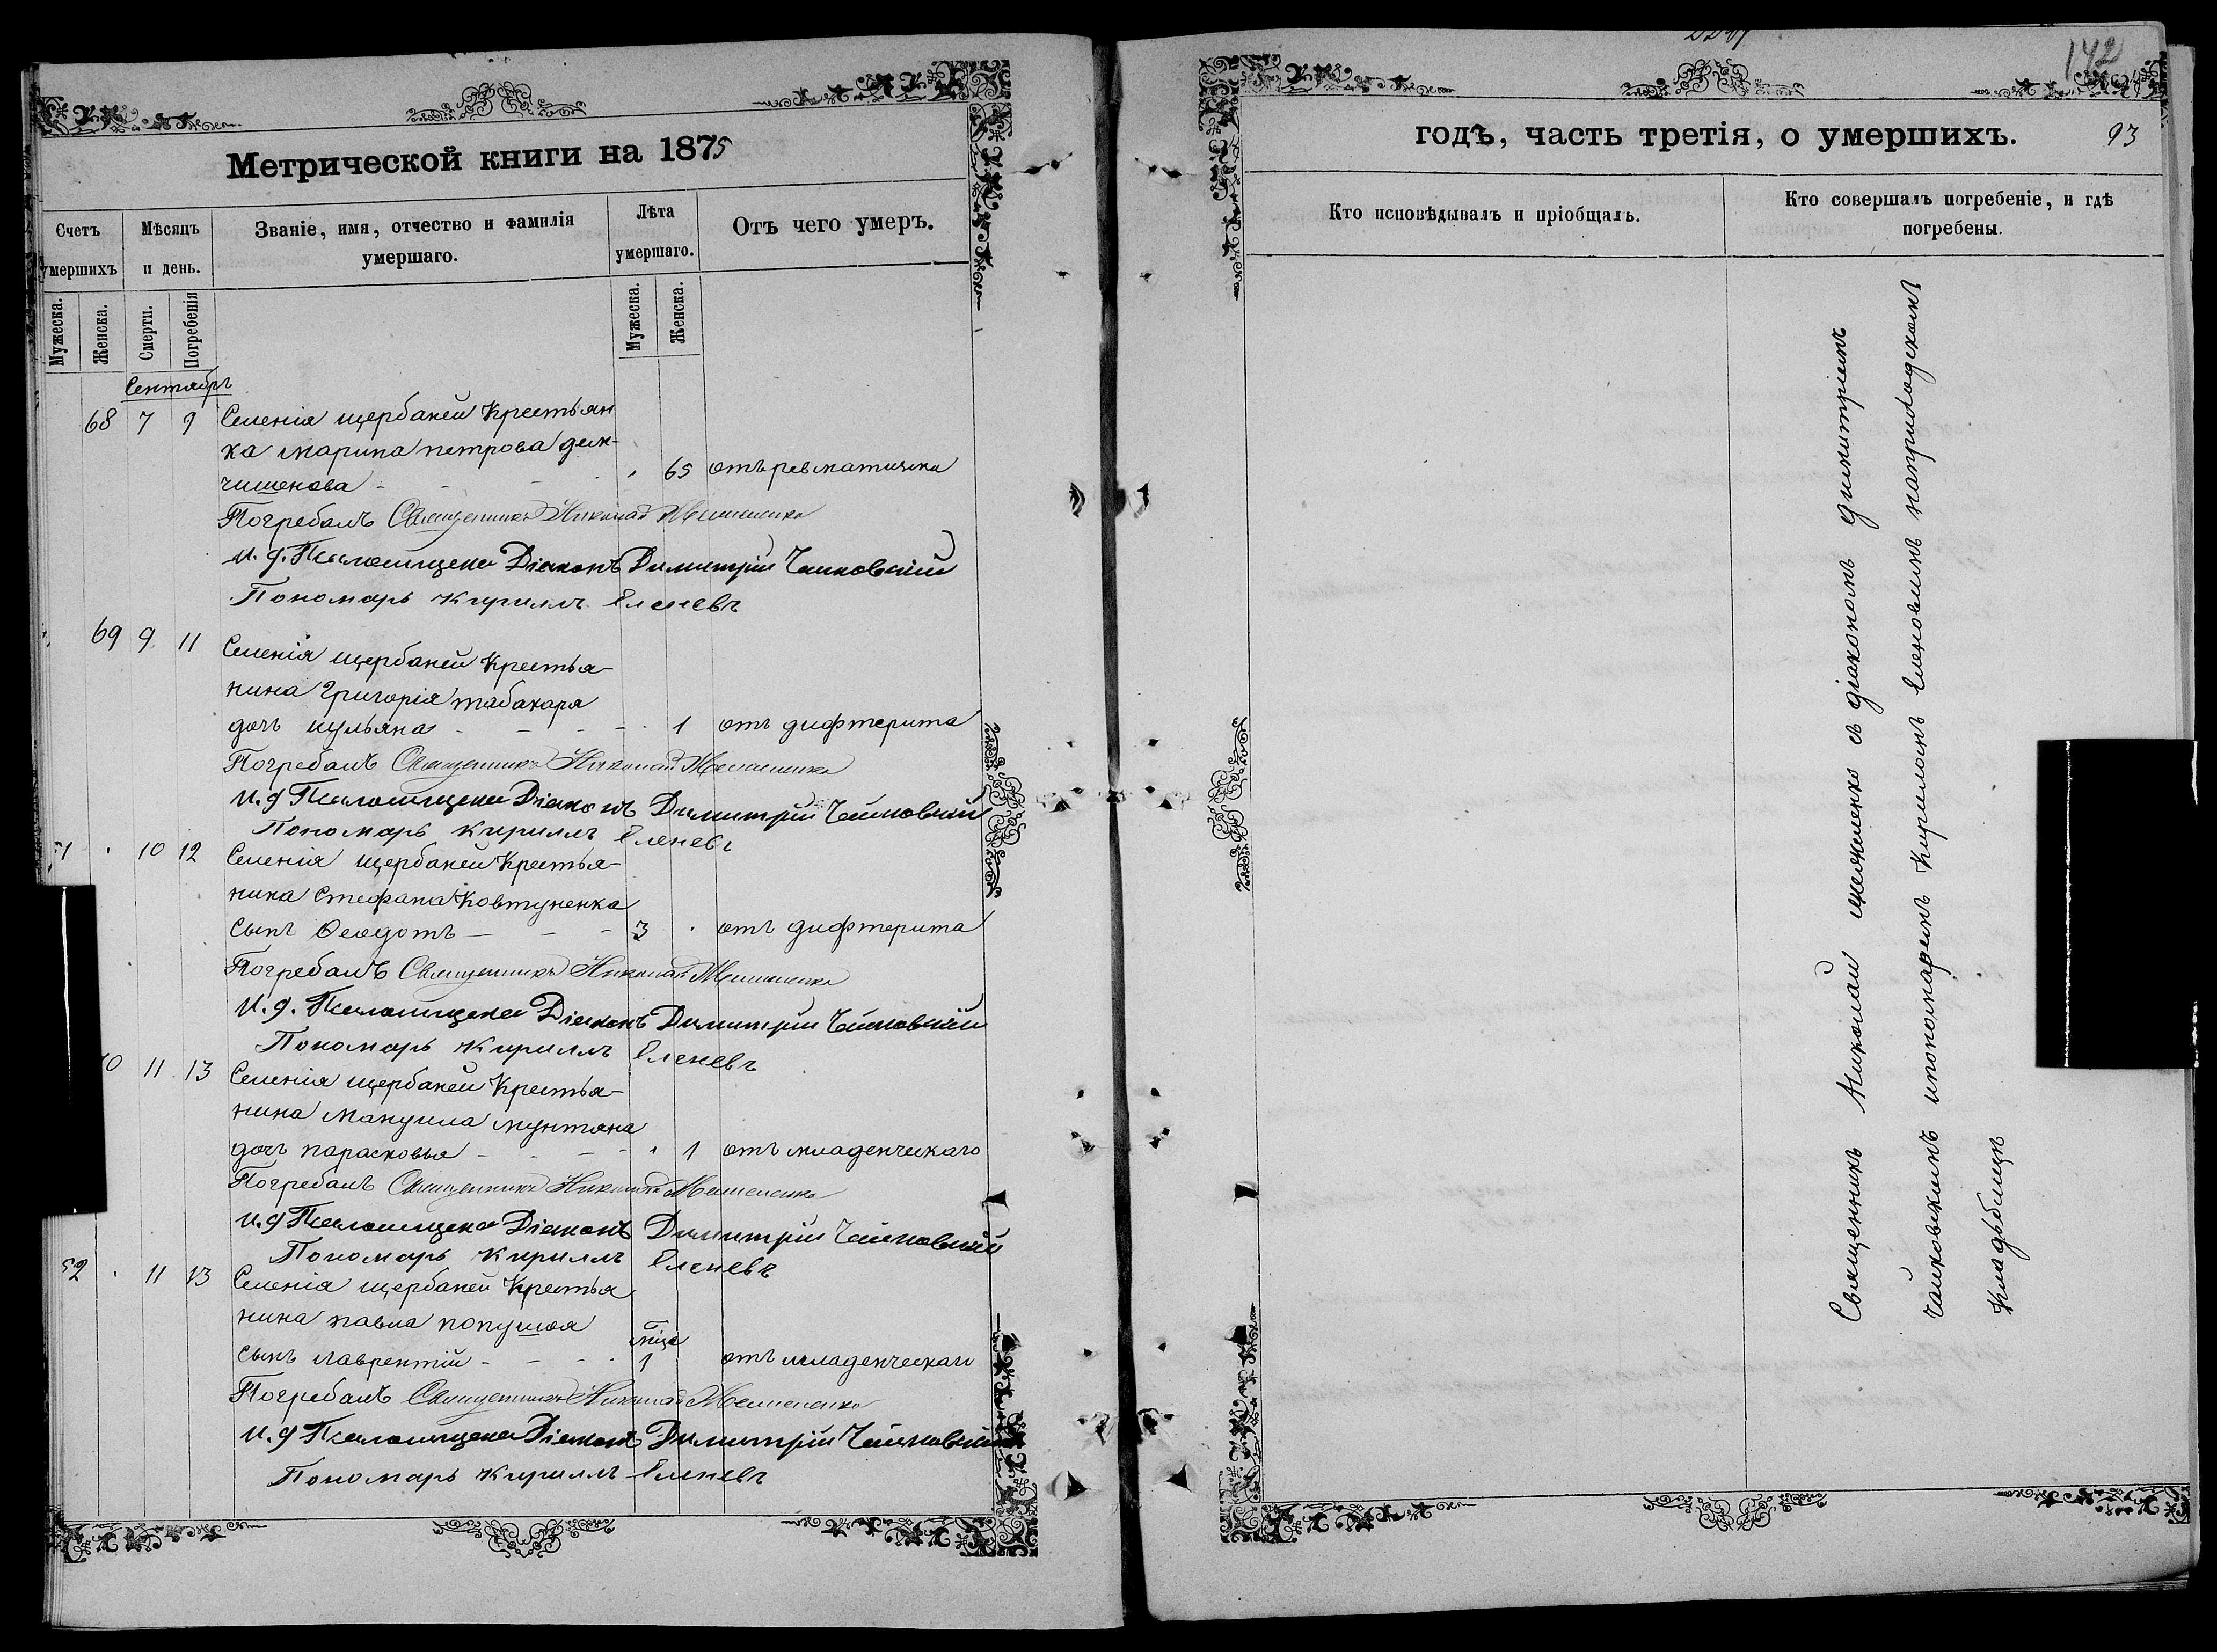 Метрической книги на 1875
Счетъ умершихъ
Мѣсяцъ и день.
Званіе, имя, отчество и фамилія умершаго.
Лѣта умершаго.
Отъ чего умеръ.
Мужеска. Женска. Смерти. Погребенія Мужеска. Женска.
Сентябрь
68 7 9 Селенія щербаней Крестьян
ка марина петрова дем-
чишенова - 65 отъ ревматизма
Погребалъ Священникъ Николай
и. д. Псаломщика Діаконъ Димитрій Чайковскій
Пономарь Кириллъ Еленевъ
69 9 11 Селенія щербаней Крестья-
нина Григорія табакаря
дочь иульяна - 1 отъ дифтерита
Погребалъ Священникъ Николай
и. д Псаломщика Діаконъ Димитрій Чайковскій
Пономарь Кириллъ Еленевъ
51 10 12 Селенія щербаней Крестья-
нина Стефана Ковтуненка
сынъ Ѳеодотъ - 3 отъ дифтерита
Погребалъ Священникъ Николай
И. д. Псаломщика Діаконъ Димитрій Чайковскій
Пономарь Кириллъ Еленевъ
0 11 13 Селенія щербаней Крестья-
нина мануила мунтяна
дочь парасковья - 1 отъ младенческаго
Погребалъ Священникъ Николай
и. д Псаломщика Діаконъ Димитрій Чайковскій
Пономарь Кириллъ Еленевъ
52 11 13 Селенія щербаней Крестья
нина павла попушоя
мѣся
сынъ лаврентій - 1 отъ младенческаго
Погребалъ Священникъ Николай
и. д Псаломщика Діаконъ Димитрій Чайковскій
Пономарь Кириллъ Еленевъ
142
годъ, часть третія, о умершихъ.
93
Кто исповѣдывалъ и пріобщалъ.
Кто совершалъ погребеніе, и гдѣ погребены.
Священникъ Николай с діакономъ димитріемъ
Чайковскимъ ипономаремъ Кириломъ Еленовымъ наприходскомъ
Кладьбищѣ